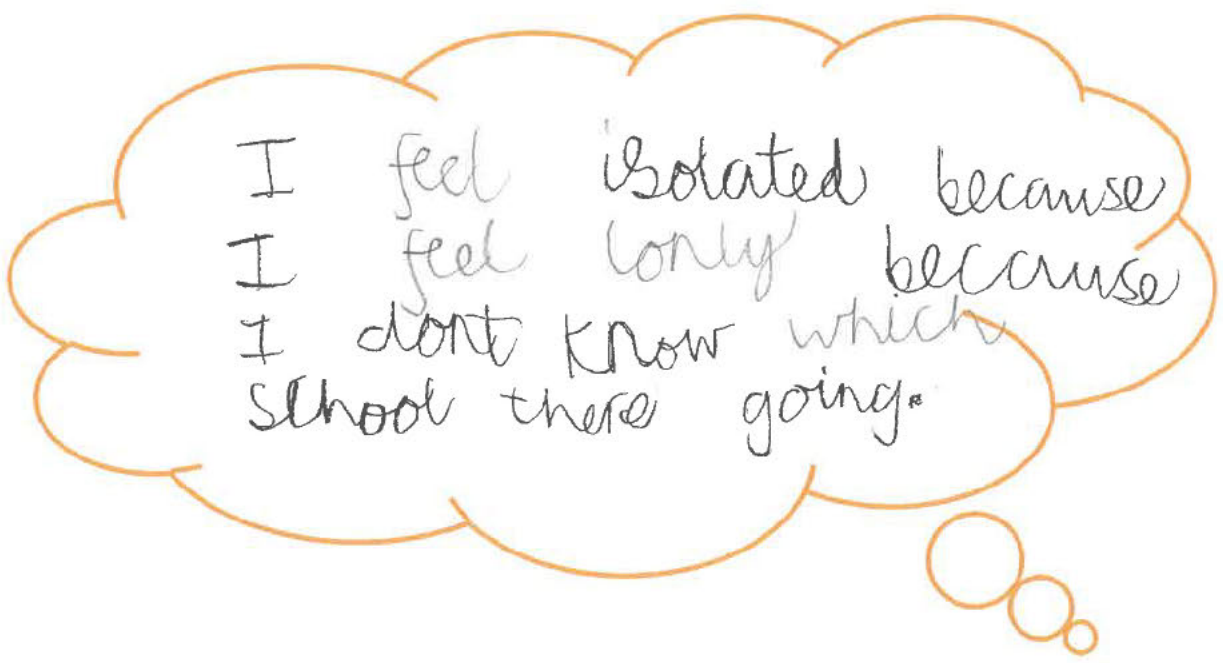 I feel isolated because
I feel lonly because
I dont know which
school there going.